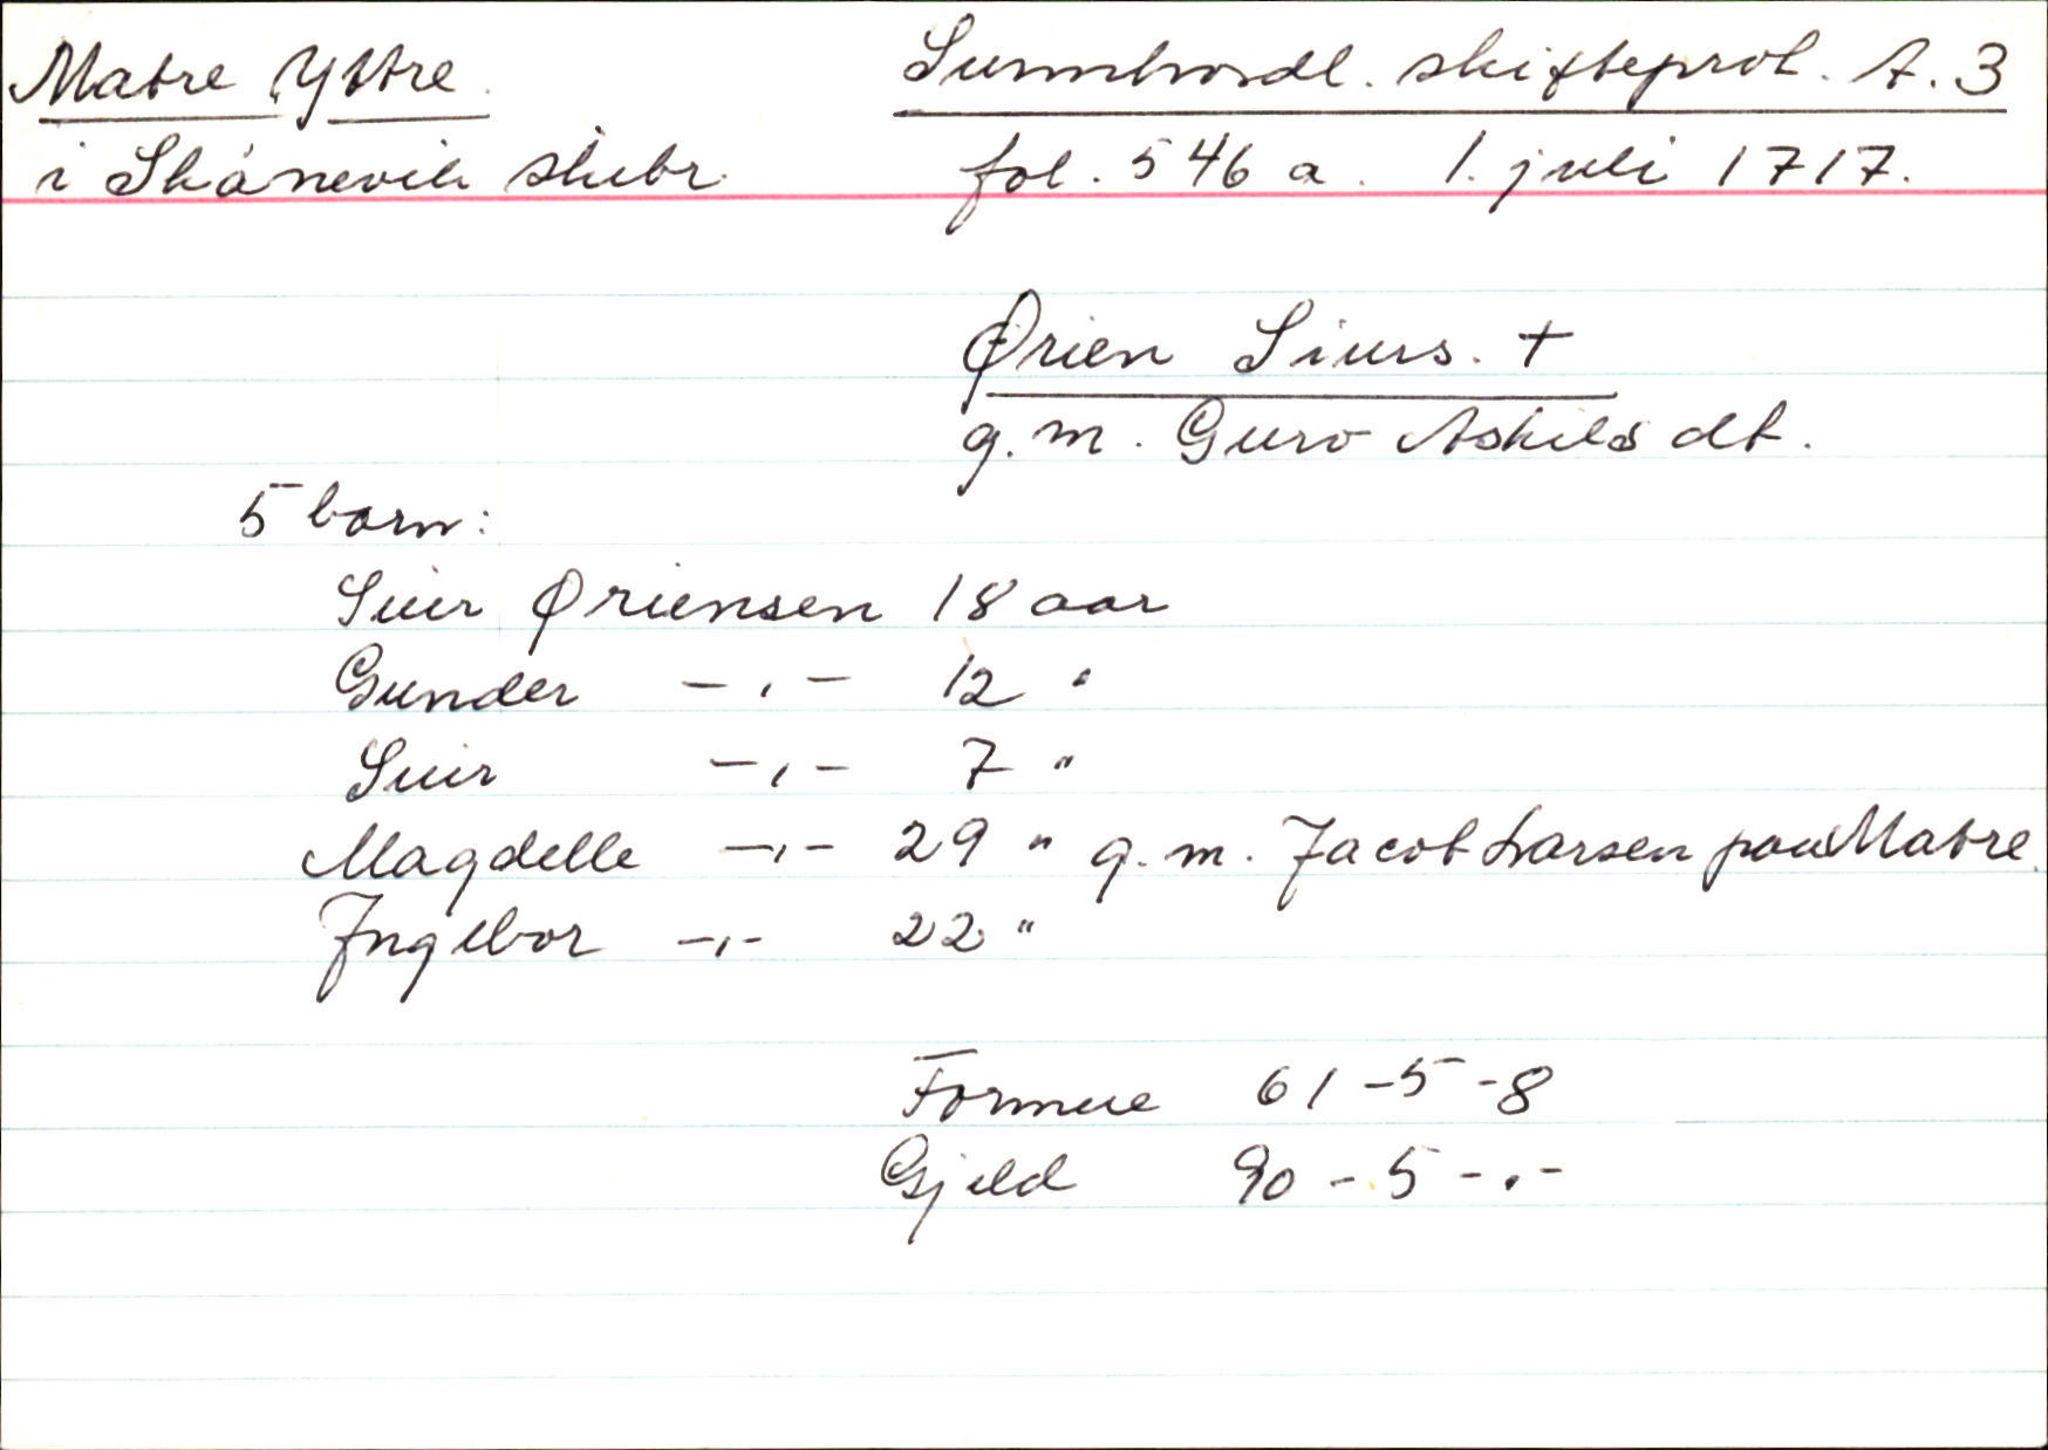 Matre Yttre.
i Skånevik skibr.
Sunnhordl. skifteprot. A. 3
fol. 546 a. 1. juli 1717.
Ørien Siurs. +
g. m. Guro Askilsdt.
5 born:
Siur Øriensen 18 aar
Gunder -,- 12 "
Siur -,- 7 "
Magdelle -,- 29 " g. m. Jacob Larsen paa Matre.
Ingebor -,- 22 "
Formue 61-5-8
Gjeld 90-5-.-